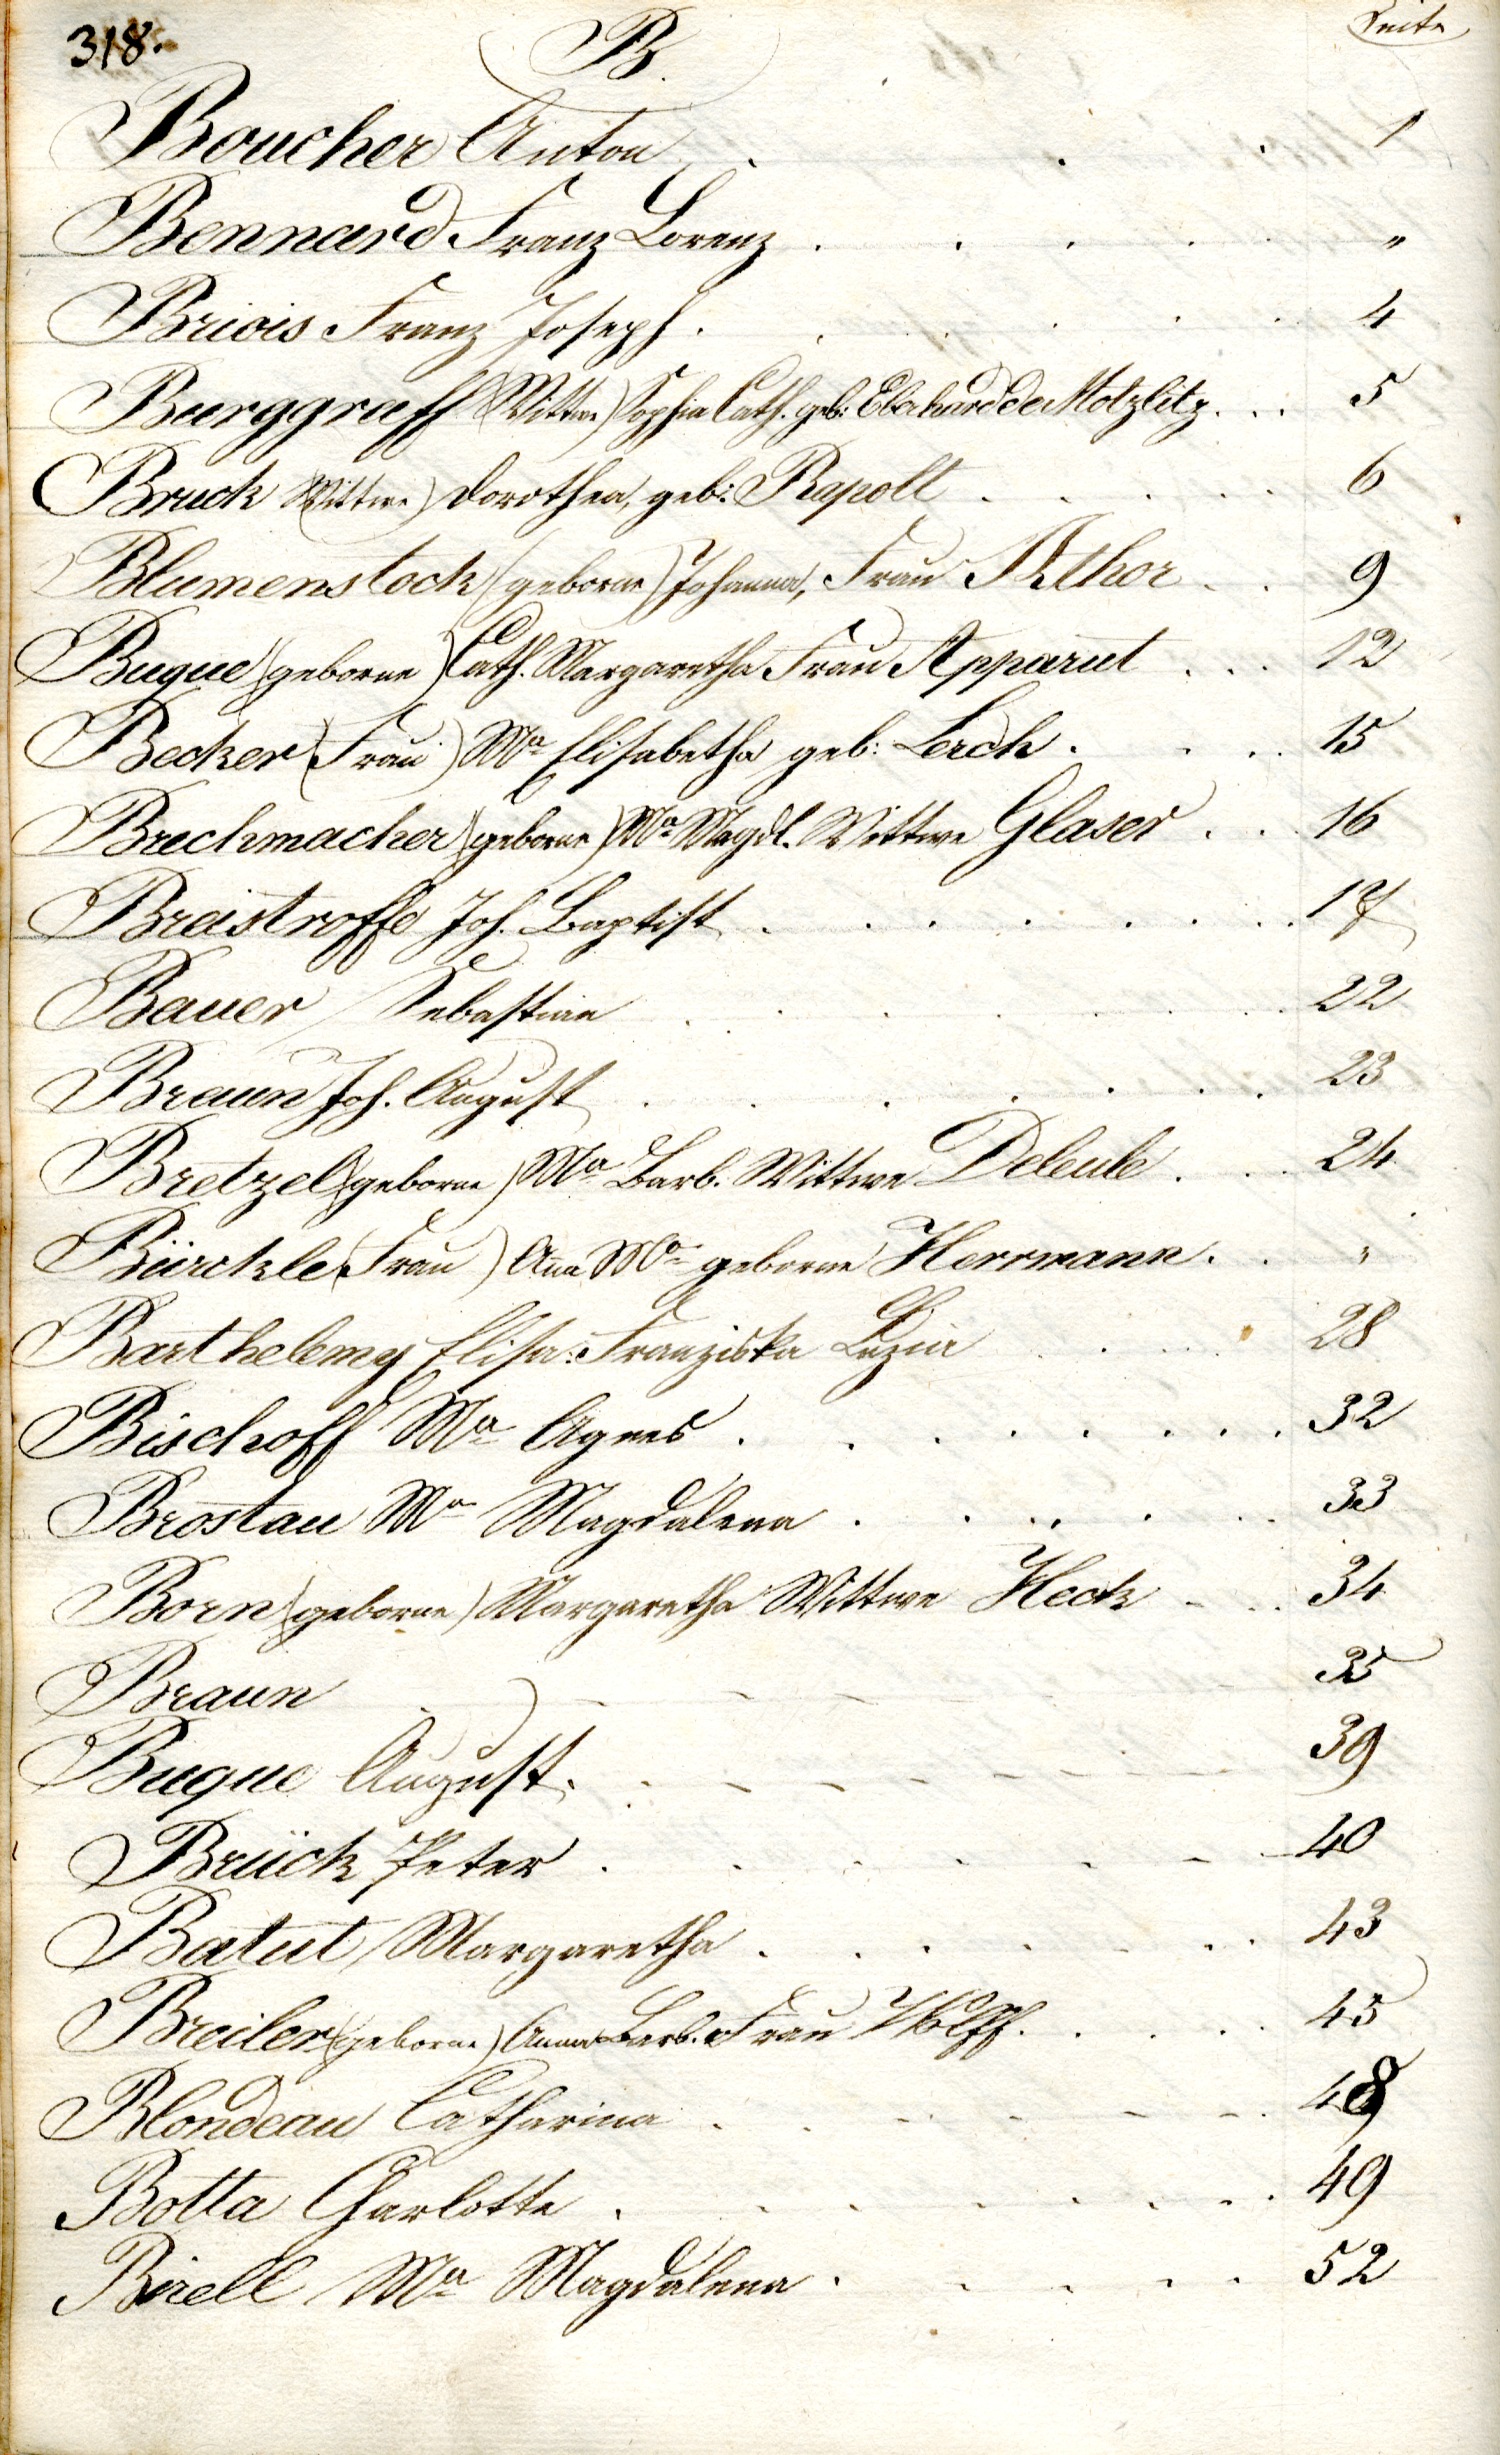 318. B. Seite
Boucher Anton . . . 1
Bennard Franz Lorenz . . . . . "
Briois Franz Joseph . . . . . 4
Burggraff (Wittwe) Sophia Cath. geb: Eberhard de Motzlitz . . . 5
Bruck (Wittwe) Dorothea, geb: Rapolt . . . . . 6
Blumenstock (geborne) Johanna, Frau Athor . . 9
Buque (geborne) Cath. Margaretha Frau Apparut . . . 12
Becker (Frau) Ma Elisabetha geb: Lerch . . . . 15
Brechmacher (geborne) Ma Magdl. Wittwe Glaser . . . 16
Breistroffe Joh. Baptist . . . . . . . 17
Bauer Sebastian . . . . . . 22
Braun Joh. August . . . . . . 23
Bretzel (geborne) Ma Barb. Wittwe Deleule . . . 24
Bürckle (Frau) Ana Ma geborne Herrmann . . "
Barthelemy Elisa: Franziska Luzia . . . . 28
Bischoff Ma Agnes . . . . . . . . 32
Brostau Ma Magdalena . . . . . . 33
Born (geborne) Margaretha Wittwe Heck . . . 34
Braun . . . . . 35
Buque August . . . . . . 39
Brück Peter . . . . . . 40
Batut Margaretha . . . . . . 43
Breiler (geborne) Anna Barb. Frau Wolff . . . . . 45
Blondeau Catharina . . . . . . 48
Botta Charlotte . . . . . . . 49
Birell Ma Magdalena . . . . . 52